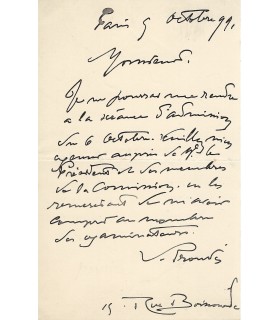 Paris 5 Octobre 99.
Monsieur.
Je ne pourrai me rendre
à la séance d'admission
du 6 Octobre. Veuillez m'ex
cuser auprès de Mr le
Président et des membres
de la Commission en les
remerciant de m'avoir
compris au nombre
des examinateurs.
15 Rue